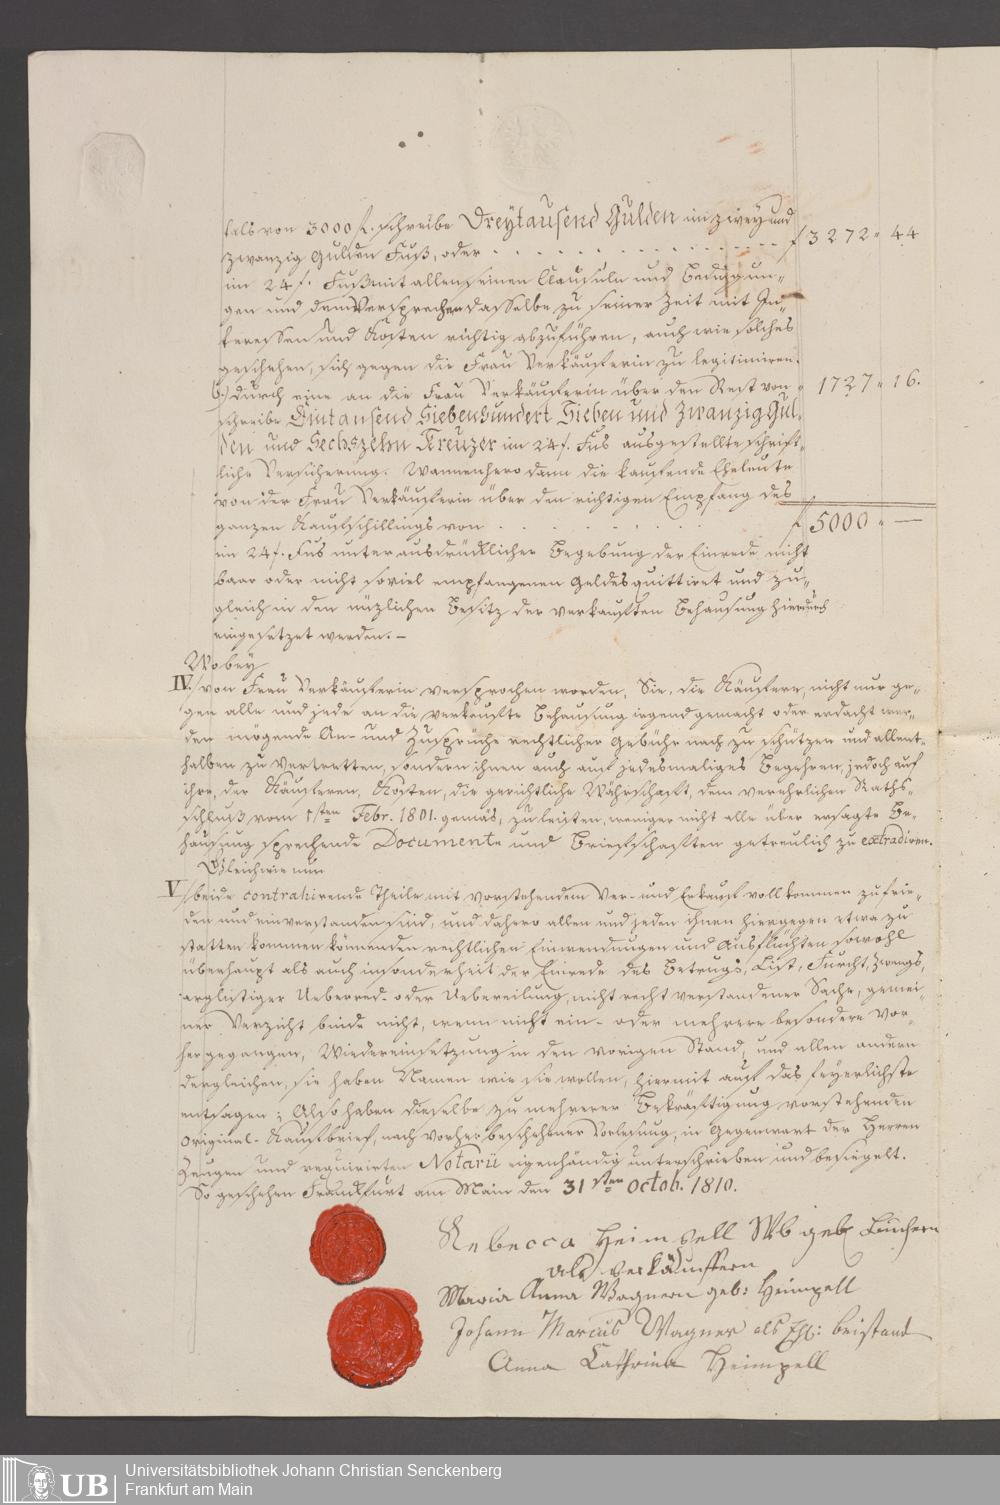 tals von 3000 f. schreibe Dreytausend Gulden im zwey und
zwanzig Gulden Fuß, oder . . . . . . . . . . . . f 3272 " 44
im 24 f. Fuß mit allen seinen Clausuln und Bedingun-
gen und dem Versprechen dasselbe zu seiner Zeit mit In-
teressen und Kosten richtig abzuführen, auch wie solches
geschehen, sich gegen die Frau Verkäuferin zu legitimiren.
b.) durch eine an die Frau Verkäuferin über den Rest von " 1727 " 16.
schreibe Eintausend Siebenhundert Sieben und Zwanzig Gul-
den und Sechszehn Kreuzer im 24 f. Fus ausgestellte schrift-
liche Versicherung. Wannenhero dann die kaufende Eheleute
von der Frau Verkäuferin über den richtigen Empfang des
ganzen Kaufschillings von . . . . . . . . f 5000 " —
im 24 f. Fus unter ausdrücklicher Begebung der Einrede nicht
baar oder nicht soviel empfangenen Geldes quittiret und zu-
gleich in den nüzlichen Besitz der verkauften Behausung hierdurch
eingesetzet werden. —
Wobey
IV.) von Frau Verkäuferin versprochen worden, Sie, die Käufere, nicht nur ge-
gen alle und jede an die verkaufte Behausung irgend gemacht oder erdacht wer-
den mögende An- und Zusprüche rechtlicher Gebühr nach zu schützen und allent-
halben zu vertretten, sondern ihnen auch auf jedesmaliges Begehren, jedoch auf
ihre, der Käuferen, Kosten, die gerichtliche Währschaft, dem verehrlichen Raths-
schluß vom 1sten Febr. 1801. gemäs, zu leisten, weniger nicht alle über ersagte Be-
hausung sprechende Documente und Briefschaften getreulich zu extradiren.
Gleichwie nun
V.) beide contrahirende Theile mit vorstehendem Ver- und Erkauf vollkommen zufrie-
den und einverstanden sind, und dahero allen und jeden ihnen hiergegen etwa zu
statten kommen könnenden rechtlichen Einwendungen und Ausflüchten sowohl
überhaupt als auch insonderheit der Einrede des Betrugs, List, Furcht, Zwangs,
arglistiger Ueberred- oder Uebereilung, nicht recht verstandener Sache, gemei-
ner Verzicht binde nicht, wenn nicht ein- oder mehrere besondere vor-
hergegangen, Wiedereinsetzung in den vorigen Stand, und allen andern
dergleichen, sie haben Namen wie sie wollen, hiermit auf das feyerlichste
entsagen; Also haben dieselbe zu mehrerer Bekräftigung vorstehenden
Original-Kaufbrief, nach vorher beschehener Vorlesung, in Gegenwart der Herren
Zeugen und requirirten Notarii eigenhändig unterschrieben und besiegelt.
So geschehen Franckfurt am Main den 31sten Octob. 1810.
Rebecca Heimpell Wb geb
als verkäuffern
Maria Anna Wagnern geb: Heimpell
Johann Marcus Wagner als Ehl: beistand
Anna Cathrina Heimpell
UB
Universitätsbibliothek Johann Christian Senckenberg
Frankfurt am Main